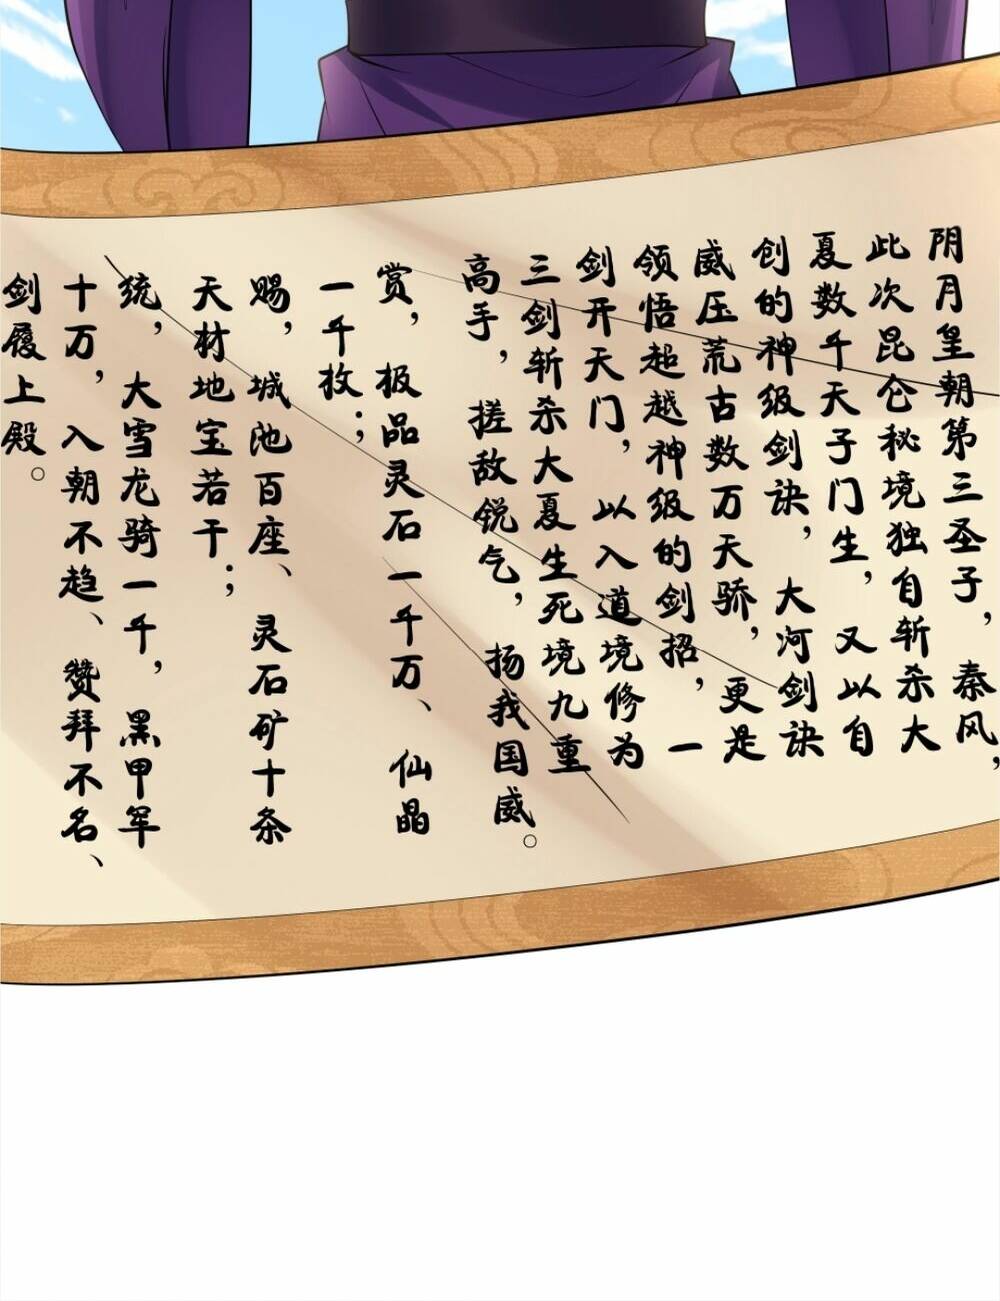 阴月皇朝第三圣子，秦风，
此次昆仑秘境独自斩杀大
夏数千天子门生，又以自
创的神级剑诀，大河剑诀
威压荒古数万天骄，更是
领悟超越神级的剑招，一
剑开天门，以入道境修为
三剑斩杀大夏生死境九重
高手，搓敌锐气，扬我国威。
赏，极品灵石一千万、仙晶
一千枚；
赐，城池百座、灵石矿十条
天材地宝若干；
统，大雪龙骑一千，黑甲军
十万，入朝不趋、赞拜不名、
剑履上殿。